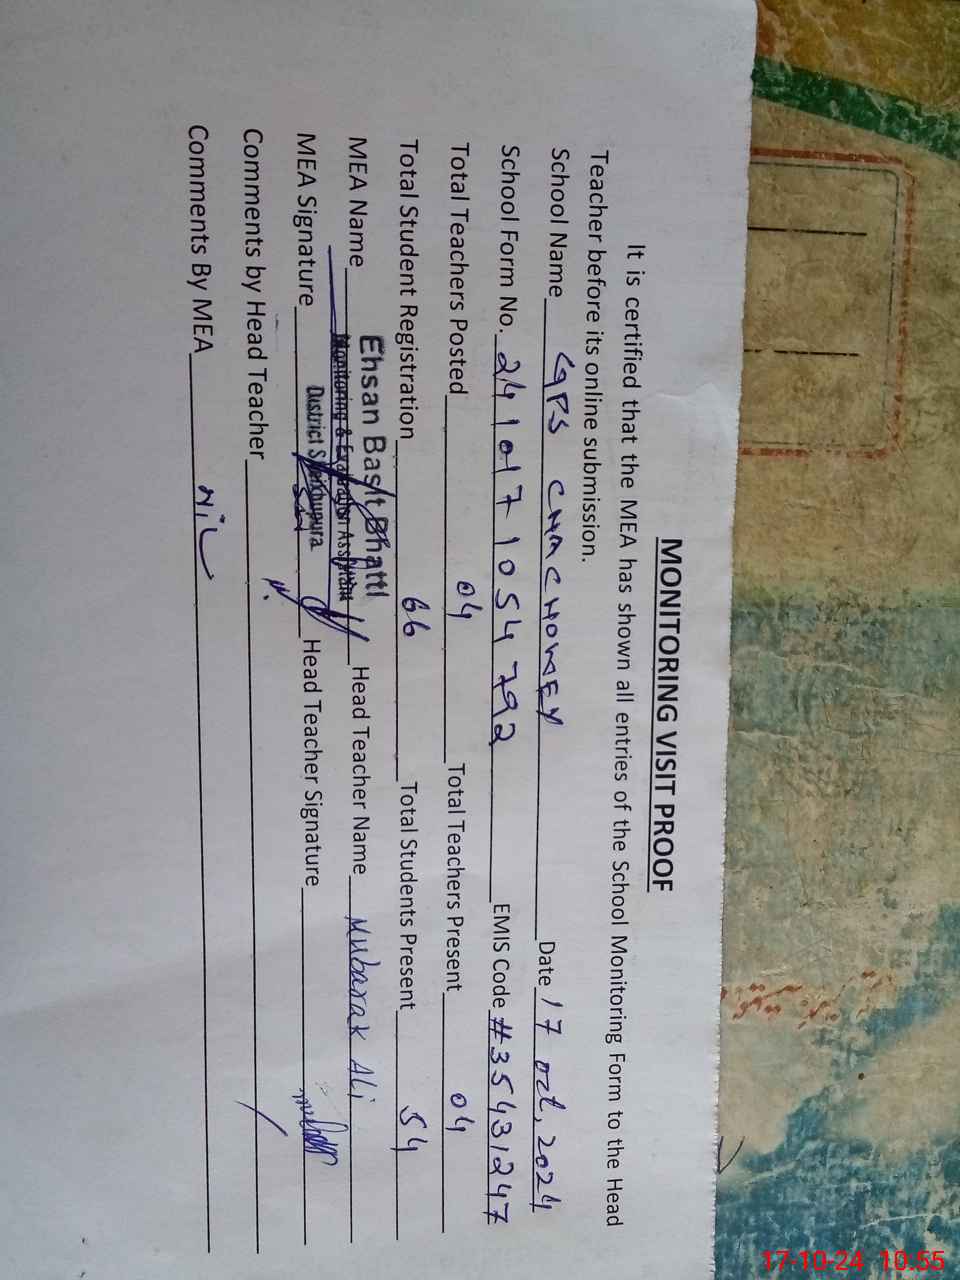 MONITORING VISIT PROOF
It is certified that the MEA has shown all entries of the School Monitoring Form to the Head
Teacher before its online submission.
School Name GPS CHACHOWEY Date 17 Oct, 2024
School Form No. 241017 1054 792 EMIS Code #35431247
Total Teachers Posted 04 Total Teachers Present 04
Total Student Registration 66 Total Students Present 54
Ehsan Basit Bhatti
MEA Name Head Teacher Name Mubarak Ali
Monitoring & Evaluation Assistant
District Sheikhupura
MEA Signature Head Teacher Signature
Comments by Head Teacher
Comments By MEA NiL
17-10-24 10:55